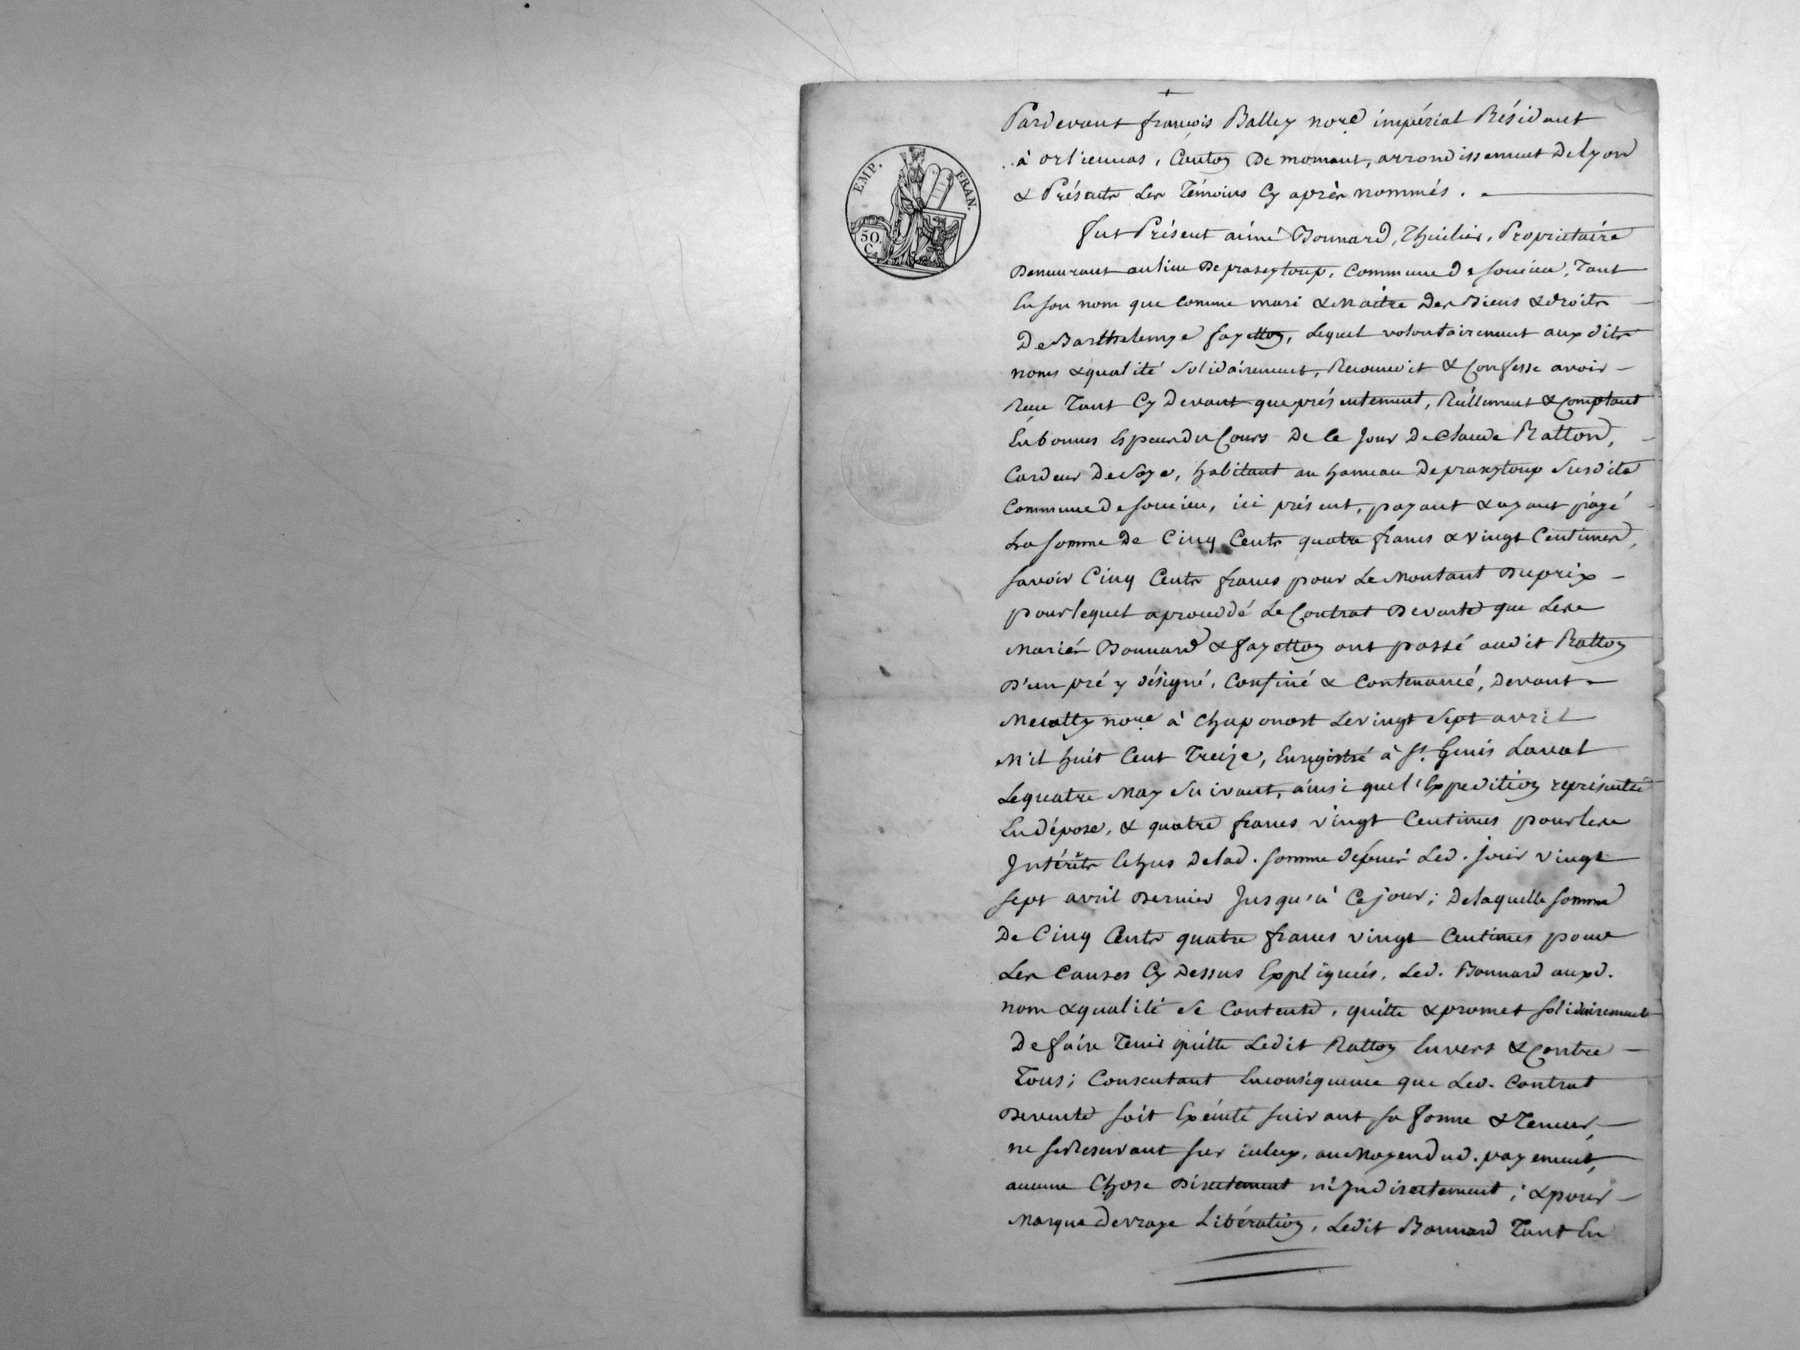 EMP. FRAN.
50 C.
Pardevant françois Balley nore. impérial Résidant
à orliennas, Canton De mornant, arrondissement Delyon
& Présents Les Témoins Cy après nommés.
fut Présent aimé Bonnard, Thuilier, Propriétaire
Demeurant aulieu De prasseytoup, Commune De soucieu, Tant
En son nom que Comme mari & Maitre Des Biens & droits
De Barthelemye fayetton, Lequel volontairement aux dits
noms & qualité Solidairement, Reconnoit & Confesse avoir
Recu Tant Cy Devant que présentement, Réellement & Comptant
En bonnes Especes du Cours De Ce Jour De Claude Ratton,
Cardeur De Soye, habitant au hameau De prasseytoup Susdite
Commune De soucieu, ici présent, payant & ayant payé
La somme De Cinq Cents quatre francs & vingt Centimes,
savoir Cinq Cents francs pour Le Montant Du prix
pour lequel a procédé Le Contrat De vente que Les
Mariés Bonnard & fayetton ont passé audit Ratton
D'un pré y désigné, Confiné & Contenancé, Devant
Me nore à Chaponost Le vingt Sept avril
Mil huit Cent Treize, Enregistré à St. Genis Laval
Le quatre May Suivant, ainsi que l'Expedition représentée
En dépose, & quatre francs vingt Centimes pour les
Intérêts Echus De lad. somme depuis Led. jour vingt
sept avril Dernier Jusqu'à Ce jour; De laquelle somme
De Cinq Cents quatre francs vingt Centimes pour
Les Causes Cy Dessus Expliquées, Led. Bonnard auxd.
nom & qualité Se Contente, quitte & promet solidairement
De faire Tenir quitte Ledit Ratton Envers & Contre
Tous; Consentant En conséquence que Led. Contrat
De vente soit Exécuté suivant sa forme & Teneur,
ne se Reservant sur icelux, au Moyen dud. payement,
aucune Chose Directement ni Indirectement; & pour
Marque De vraye Libération, Ledit Bonnard Tant En